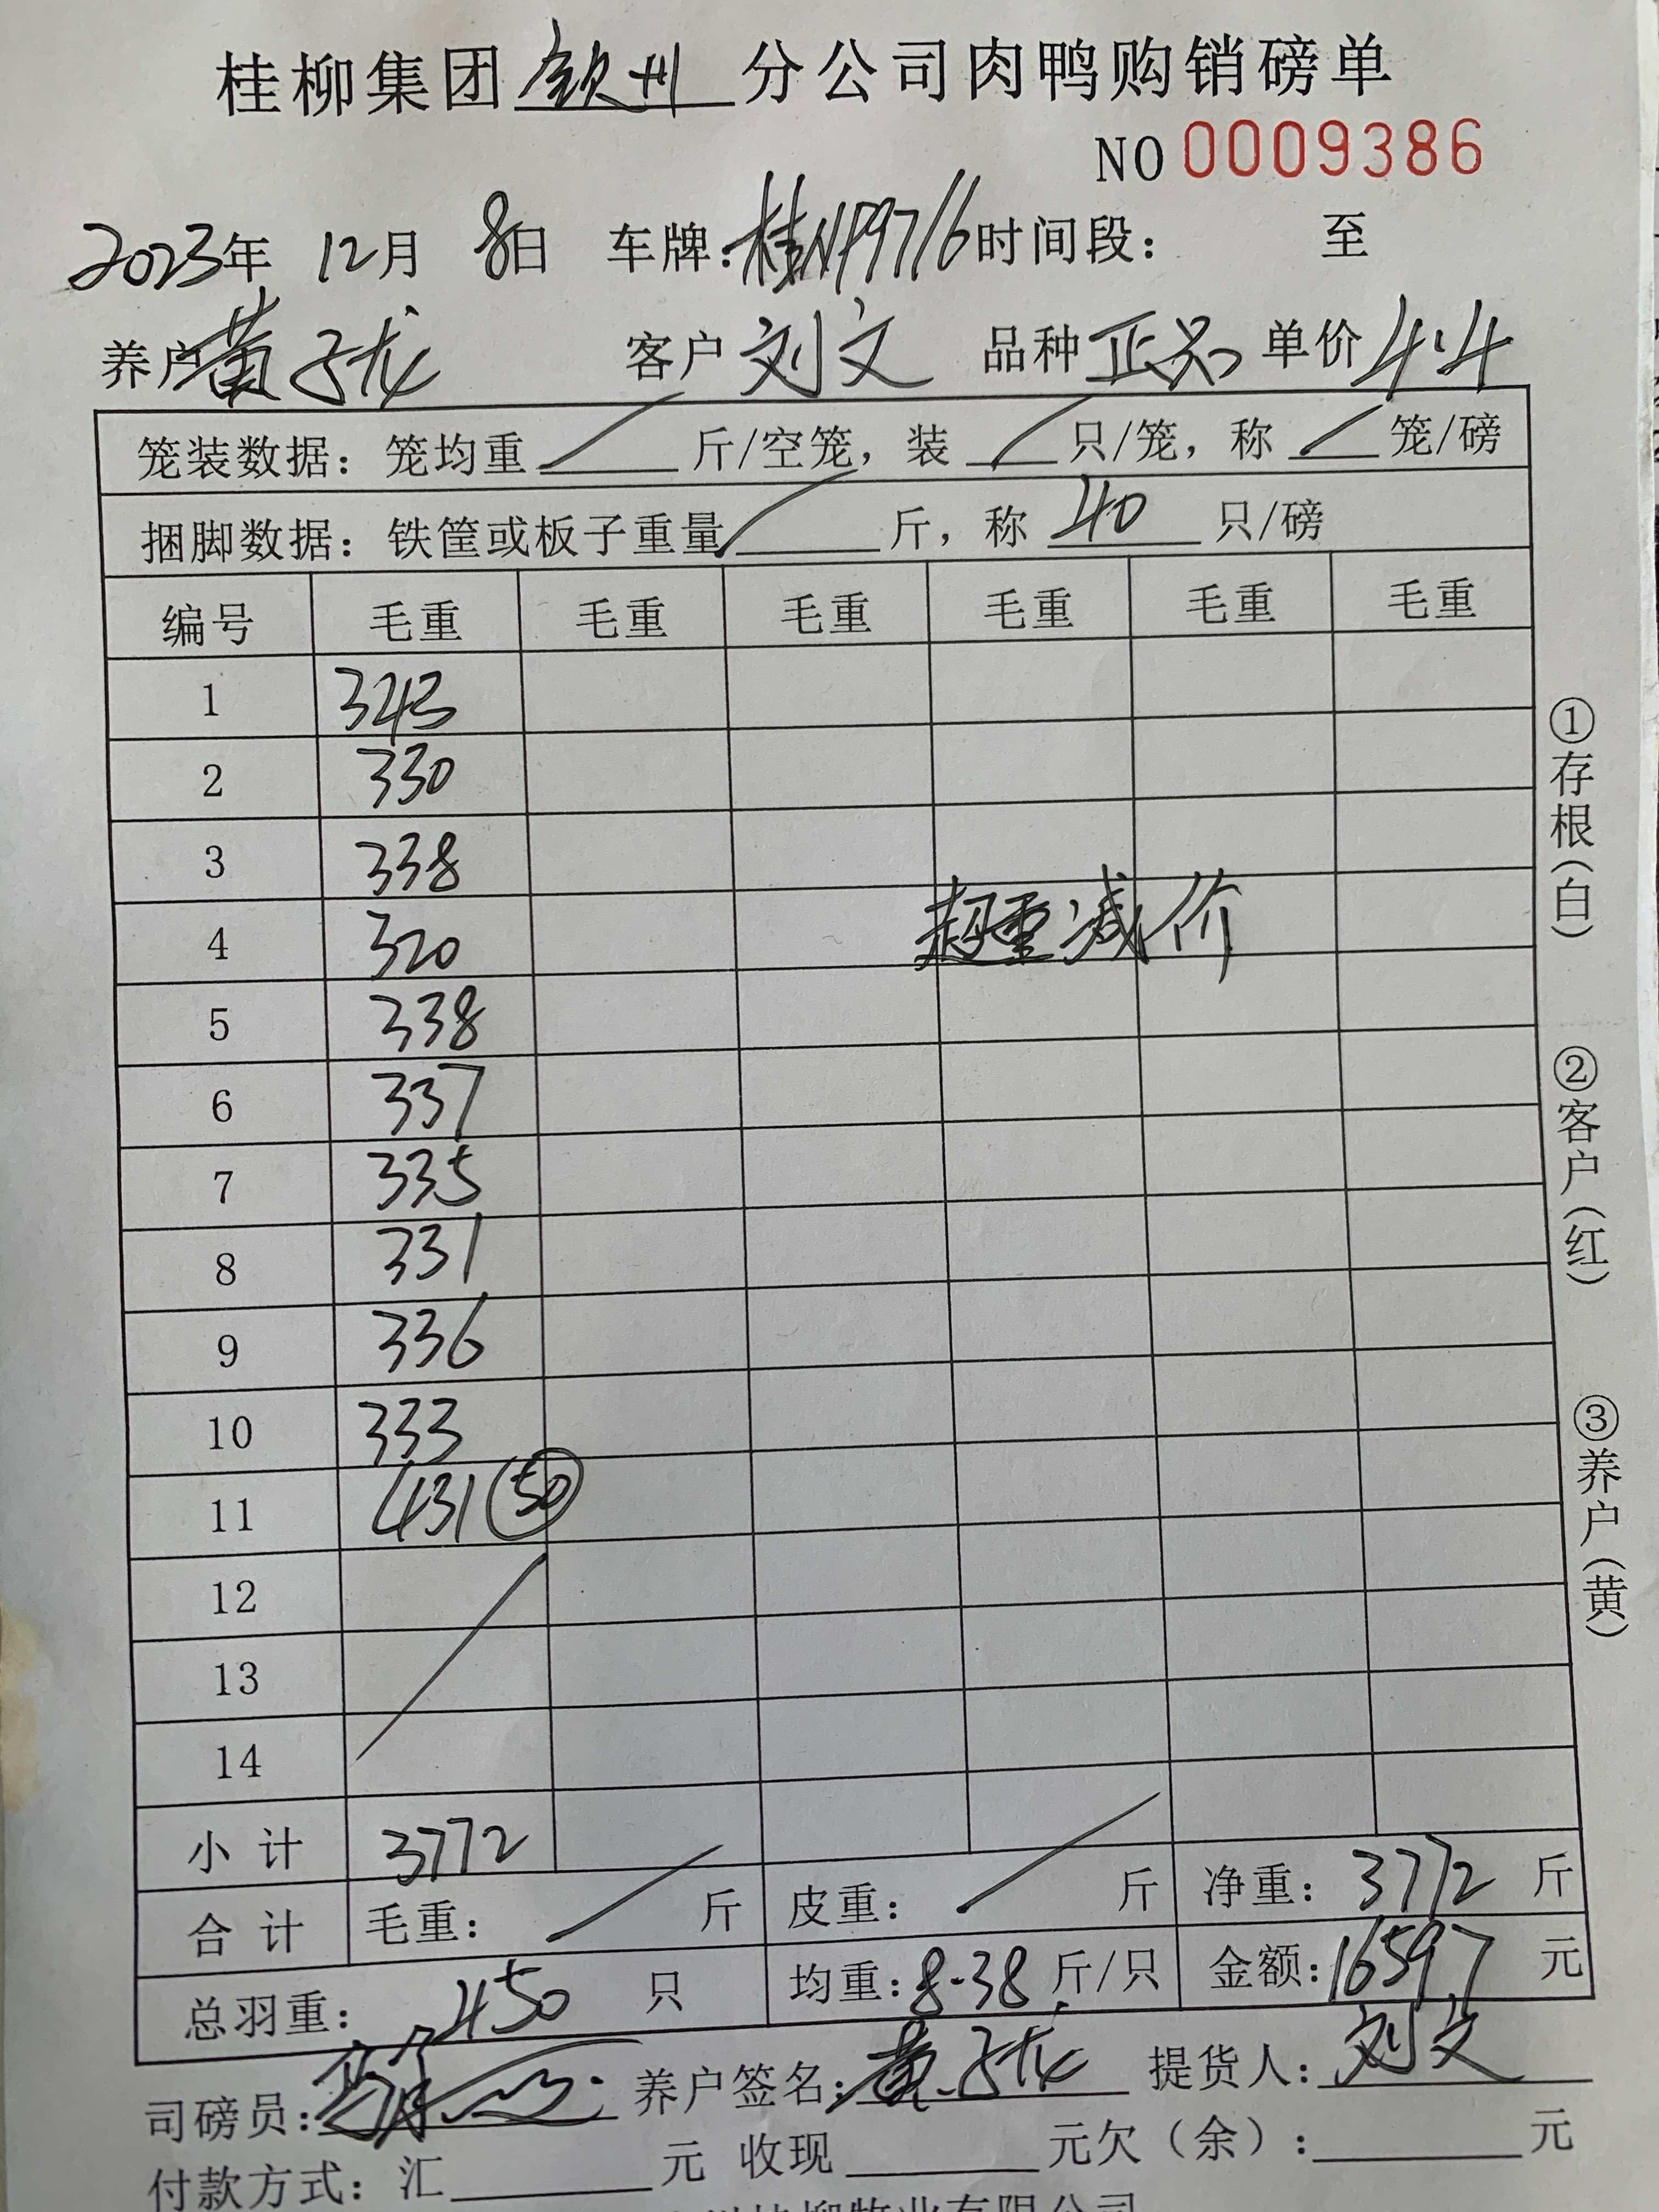 桂柳集团钦州分公司肉鸭购销磅单
NO 0009386
2023年 12月 8日 车牌:桂NP9716 时间段: 至
养户 黄子龙 客户 刘文 品种 正品 单价 4.4
笼装数据: 笼均重 / 斤/空笼, 装 / 只/笼, 称 / 笼/磅
捆脚数据: 铁筐或板子重量 / 斤, 称 40 只/磅
编号 毛重 毛重 毛重 毛重 毛重 毛重
1 343
2 330
3 338
4 320
超重减价
5 338
6 337
7 335
8 331
9 336
10 333
11 431 (50)
12
13
14
小计 3772
合计 毛重: / 斤 皮重: / 斤 净重: 3772 斤
总羽重: 450 只 均重: 8.38 斤/只 金额: 16597 元
司磅员: 养户签名: 黄子龙 提货人: 刘文
付款方式: 汇 元 收现 元欠(余): 元
①存根(白)
②客户(红)
③养户(黄)